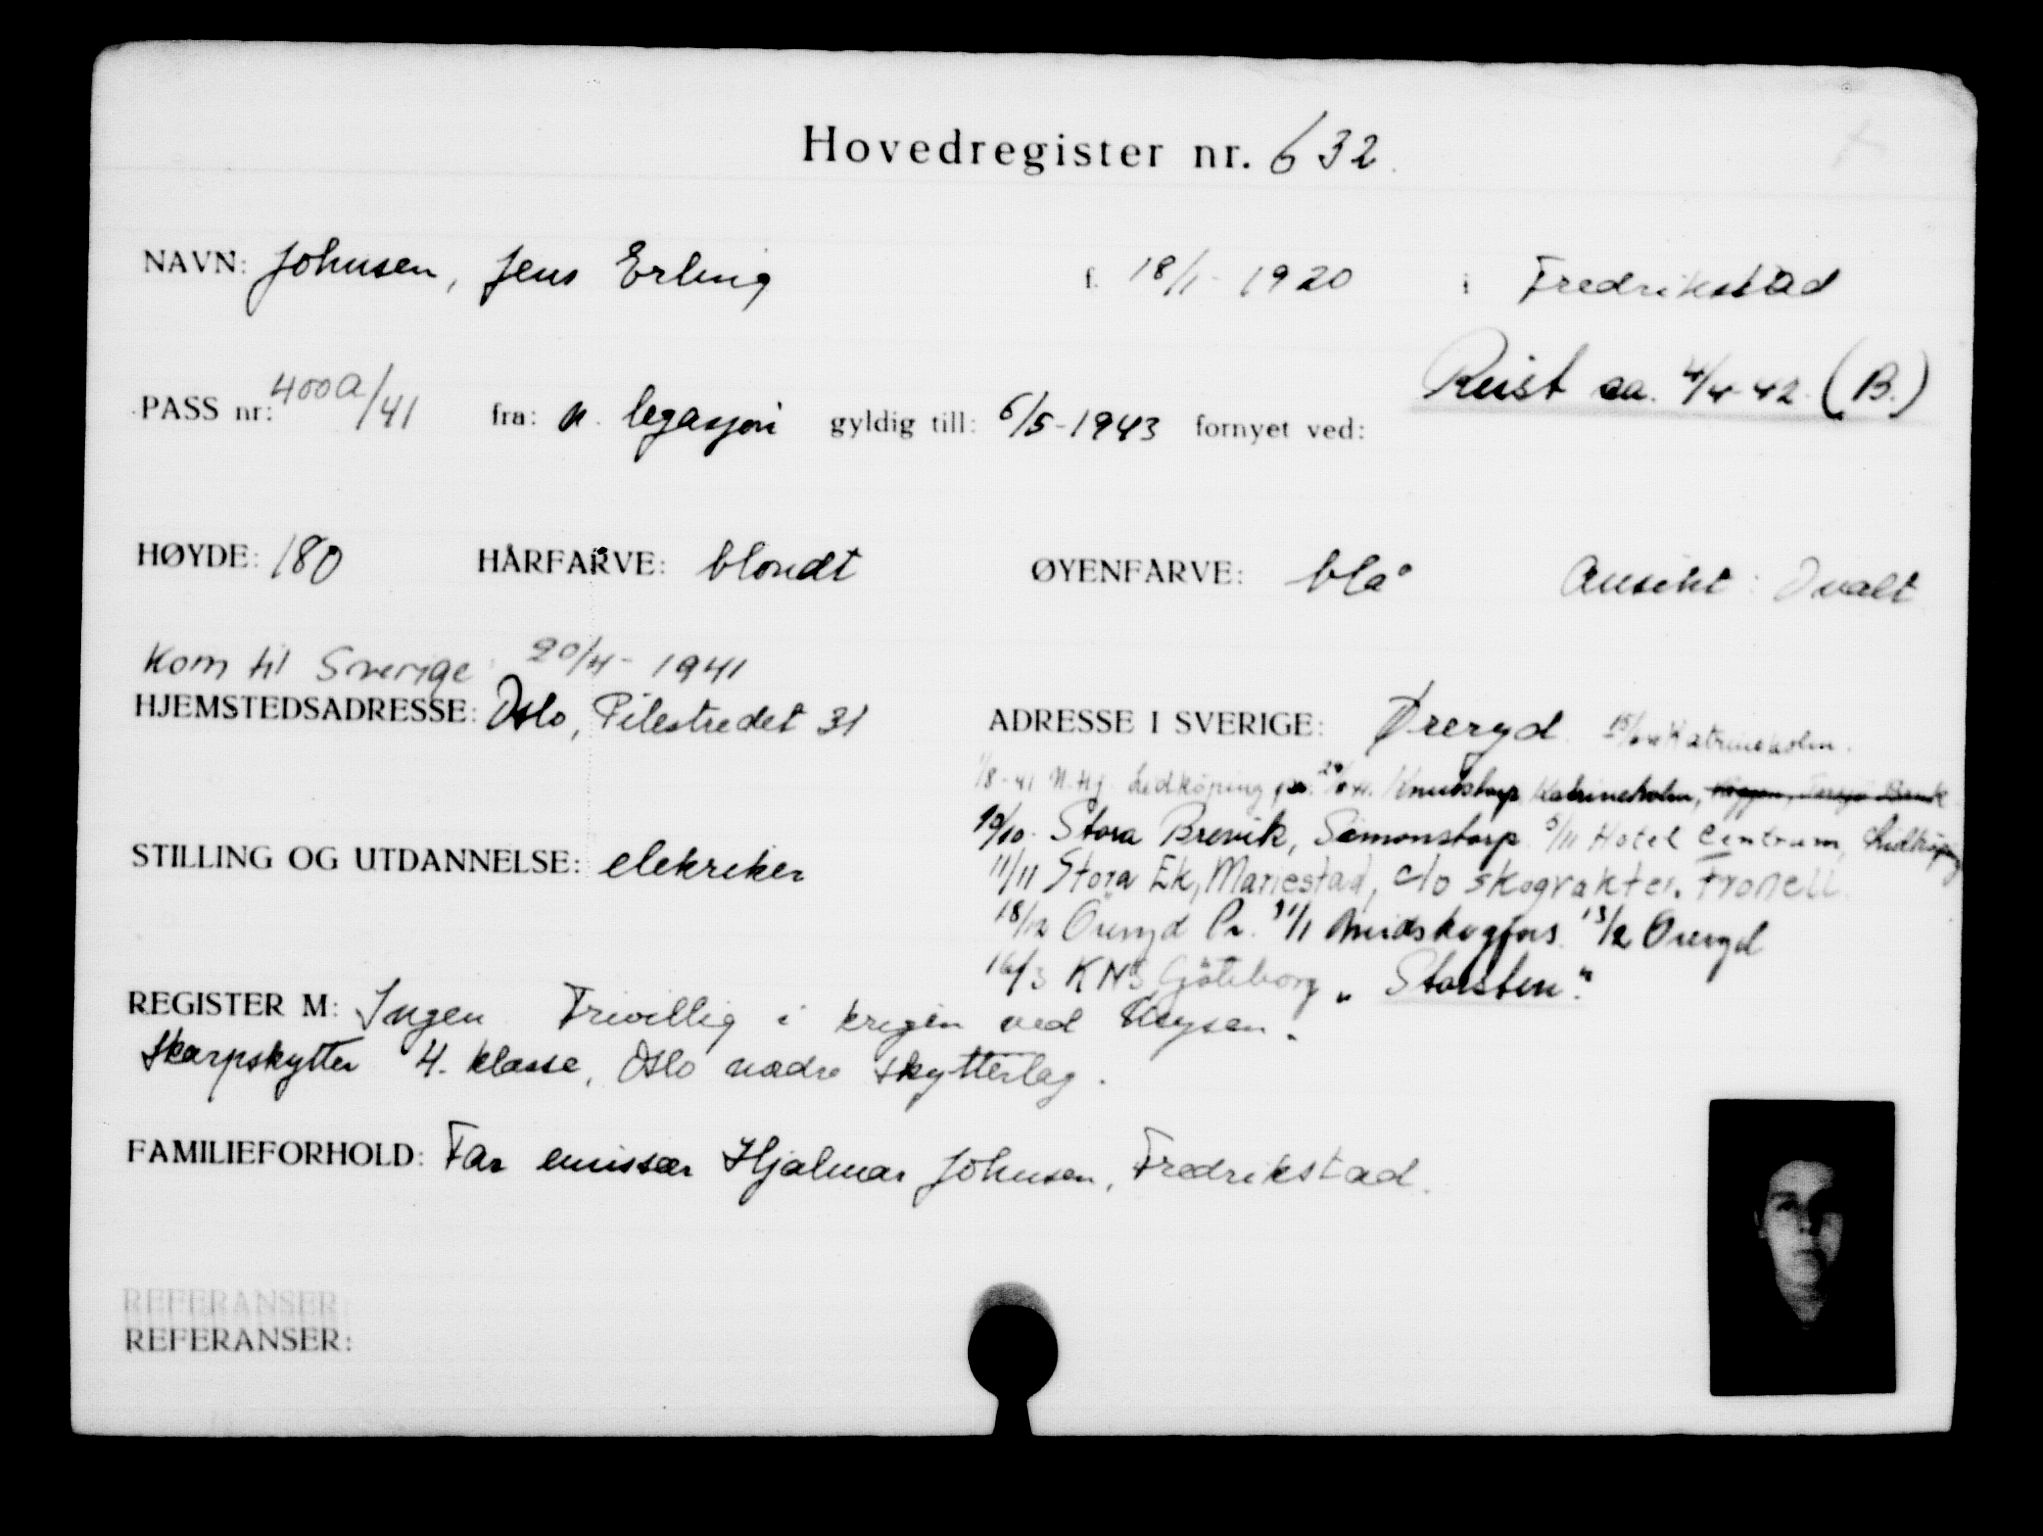 Hovedregister nr. 632.
NAVN: Johnsen, Jens Erling f. 18/1 - 1920 i Fredrikstad
Reist ca. 4/4-42. (B.)
PASS nr: 400a/41 fra: n. legasjon gyldig till: 6/5-1943 fornyet ved:
HØYDE: 180 HÅRFARVE: blondt ØYENFARVE: blå Ansikt: Ovalt
Kom til Sverige: 20/4 - 1941
HJEMSTEDSADRESSE: Oslo, Pilestredet 31 ADRESSE I SVERIGE: Øreryd. Katrineholm.
1/8-41 N.Hj. Lidköping Knutstorp Katrineholm,
10/10. Stora Brevik, Simonstorp 5/11 Hotel Centrum, Lidköping
STILLING OG UTDANNELSE: elekriker
11/11 Stora Ek, Mariestad, c/o skogvakter. Fronell.
18/12 Öreryd Pr. 31/1 Munkskogfors 13/2 Öreryd
16/3 KNS Göteborg „Storsten"
REGISTER M: Ingen Frivillig i krigen ved
Skarpskytter 4. klasse, Oslo nedre skytterlag.
FAMILIEFORHOLD: Far emissær Hjalmar Johnsen, Fredrikstad.
REFERANSER:
REFERANSER: